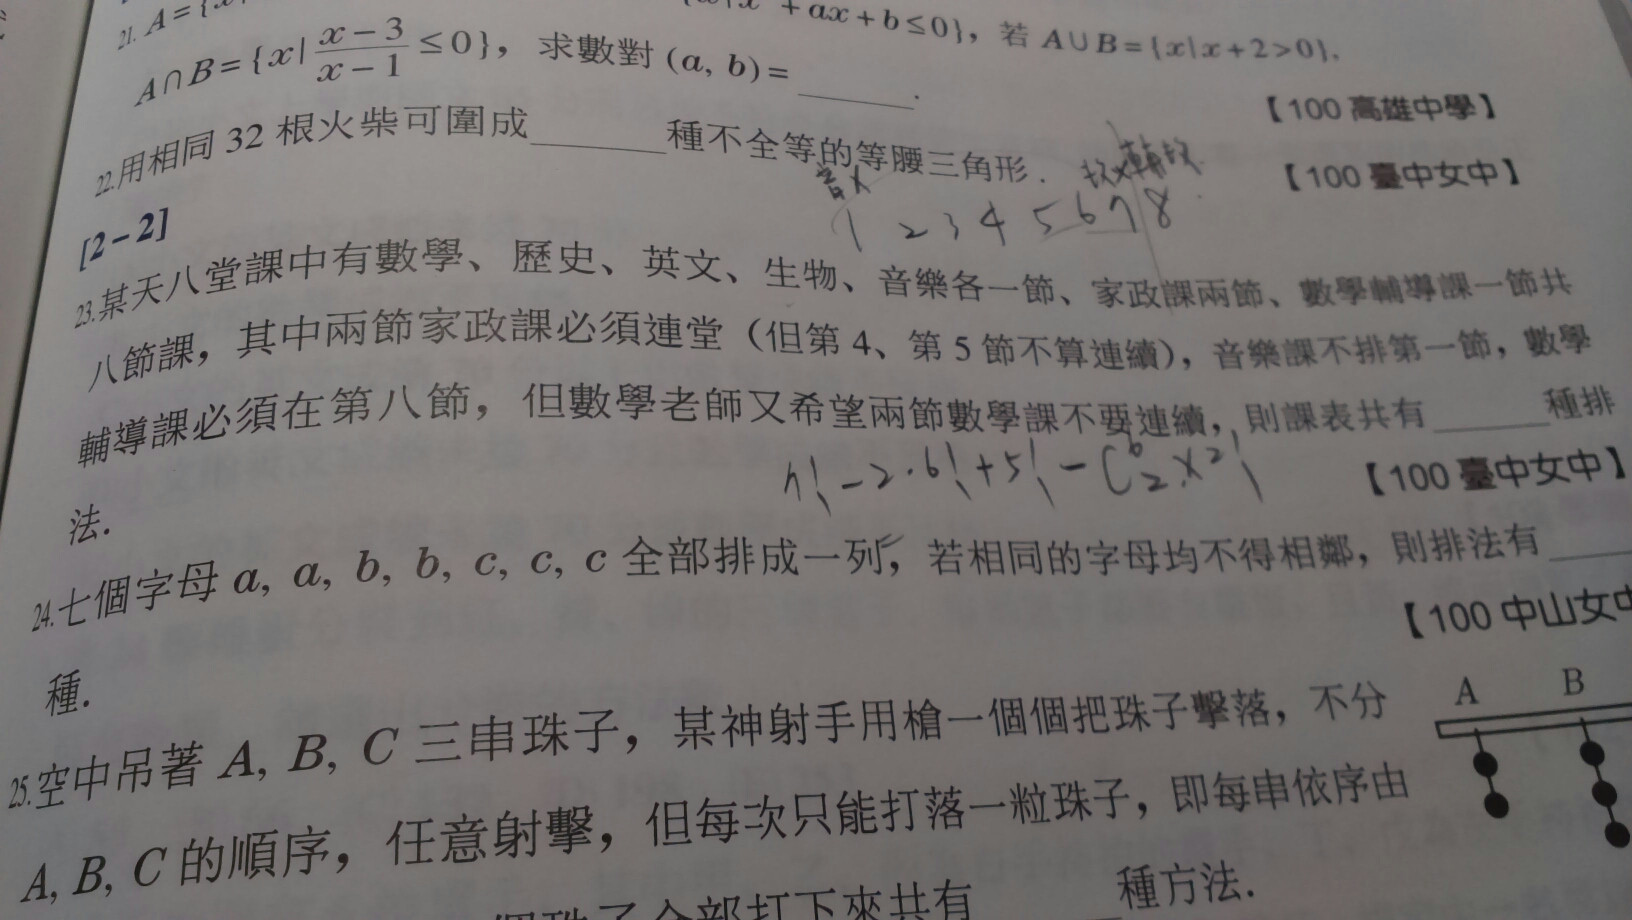 21. A={x|
x +ax+b≤0}，若 A∪B={x|x+2>0}，
A∩B={x| x-3 / x-1 ≤0}，求數對 (a, b)=______.
【100 高雄中學】
22.用相同 32 根火柴可圍成______種不全等的等腰三角形．
【100 臺中女中】
音
1 2 3 4 5 6 7 8
[2-2]
23.某天八堂課中有數學、歷史、英文、生物、音樂各一節、家政課兩節、數學輔導課一節共
八節課，其中兩節家政課必須連堂（但第 4、第 5 節不算連續），音樂課不排第一節，數學
輔導課必須在第八節，但數學老師又希望兩節數學課不要連續，則課表共有______種排
法．
7!-2·6!+5!-C⁶₂×2!
【100 臺中女中】
24.七個字母 a, a, b, b, c, c, c 全部排成一列，若相同的字母均不得相鄰，則排法有______
種．
【100 中山女中
25.空中吊著 A, B, C 三串珠子，某神射手用槍一個個把珠子擊落，不分
A, B, C 的順序，任意射擊，但每次只能打落一粒珠子，即每串依序由
個珠子全部打下來共有______種方法．
A B